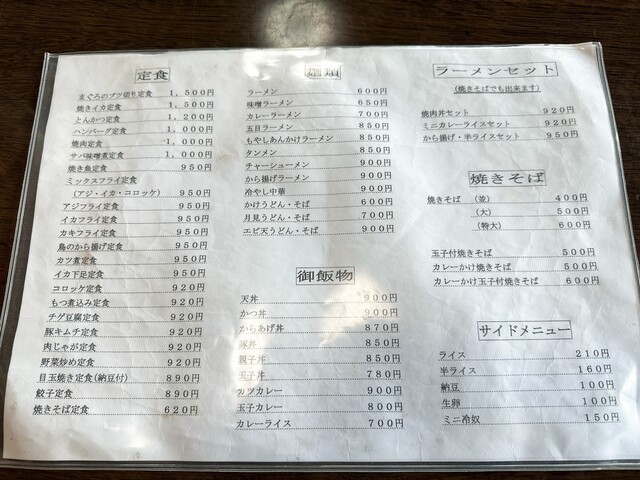 定食
まぐろのブツ切り定食 1,500円
焼きイカ定食 1,500円
とんかつ定食 1,100円
ハンバーグ定食 1,000円
焼肉定食 1,000円
サバ味噌煮定食 1,000円
焼き魚定食 950円
ミックスフライ定食
(アジ・イカ・コロッケ) 950円
アジフライ定食 950円
イカフライ定食 950円
カキフライ定食 950円
鳥のから揚げ定食 950円
カツ煮定食 950円
イカ下足定食 950円
コロッケ定食 920円
もつ煮込み定食 920円
チゲ豆腐定食 920円
豚キムチ定食 920円
肉じゃが定食 920円
野菜炒め定食 920円
目玉焼き定食(納豆付) 890円
餃子定食 890円
焼きそば定食 620円
麺類
ラーメン 600円
味噌ラーメン 650円
カレーラーメン 700円
五目ラーメン 850円
もやしあんかけラーメン 850円
タンメン 850円
チャーシューメン 900円
から揚げラーメン 900円
冷やし中華 900円
かけうどん・そば 600円
月見うどん・そば 700円
エビ天うどん・そば 900円
御飯物
天丼 900円
かつ丼 900円
からあげ丼 870円
豚丼 850円
親子丼 850円
玉子丼 780円
カツカレー 900円
玉子カレー 800円
カレーライス 700円
ラーメンセット
(焼きそばでも出来ます)
焼肉丼セット 920円
ミニカレーライスセット 920円
から揚げ・半ライスセット 950円
焼きそば
焼きそば (並) 400円
(大) 500円
(特大) 600円
玉子付焼きそば 500円
カレーかけ焼きそば 500円
カレーかけ玉子付焼きそば 600円
サイドメニュー
ライス 210円
半ライス 160円
納豆 100円
生卵 100円
ミニ冷奴 150円